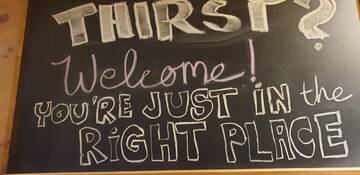 THIRST?
Welcome!
YOU'RE JUST IN the
RIGHT PLACE